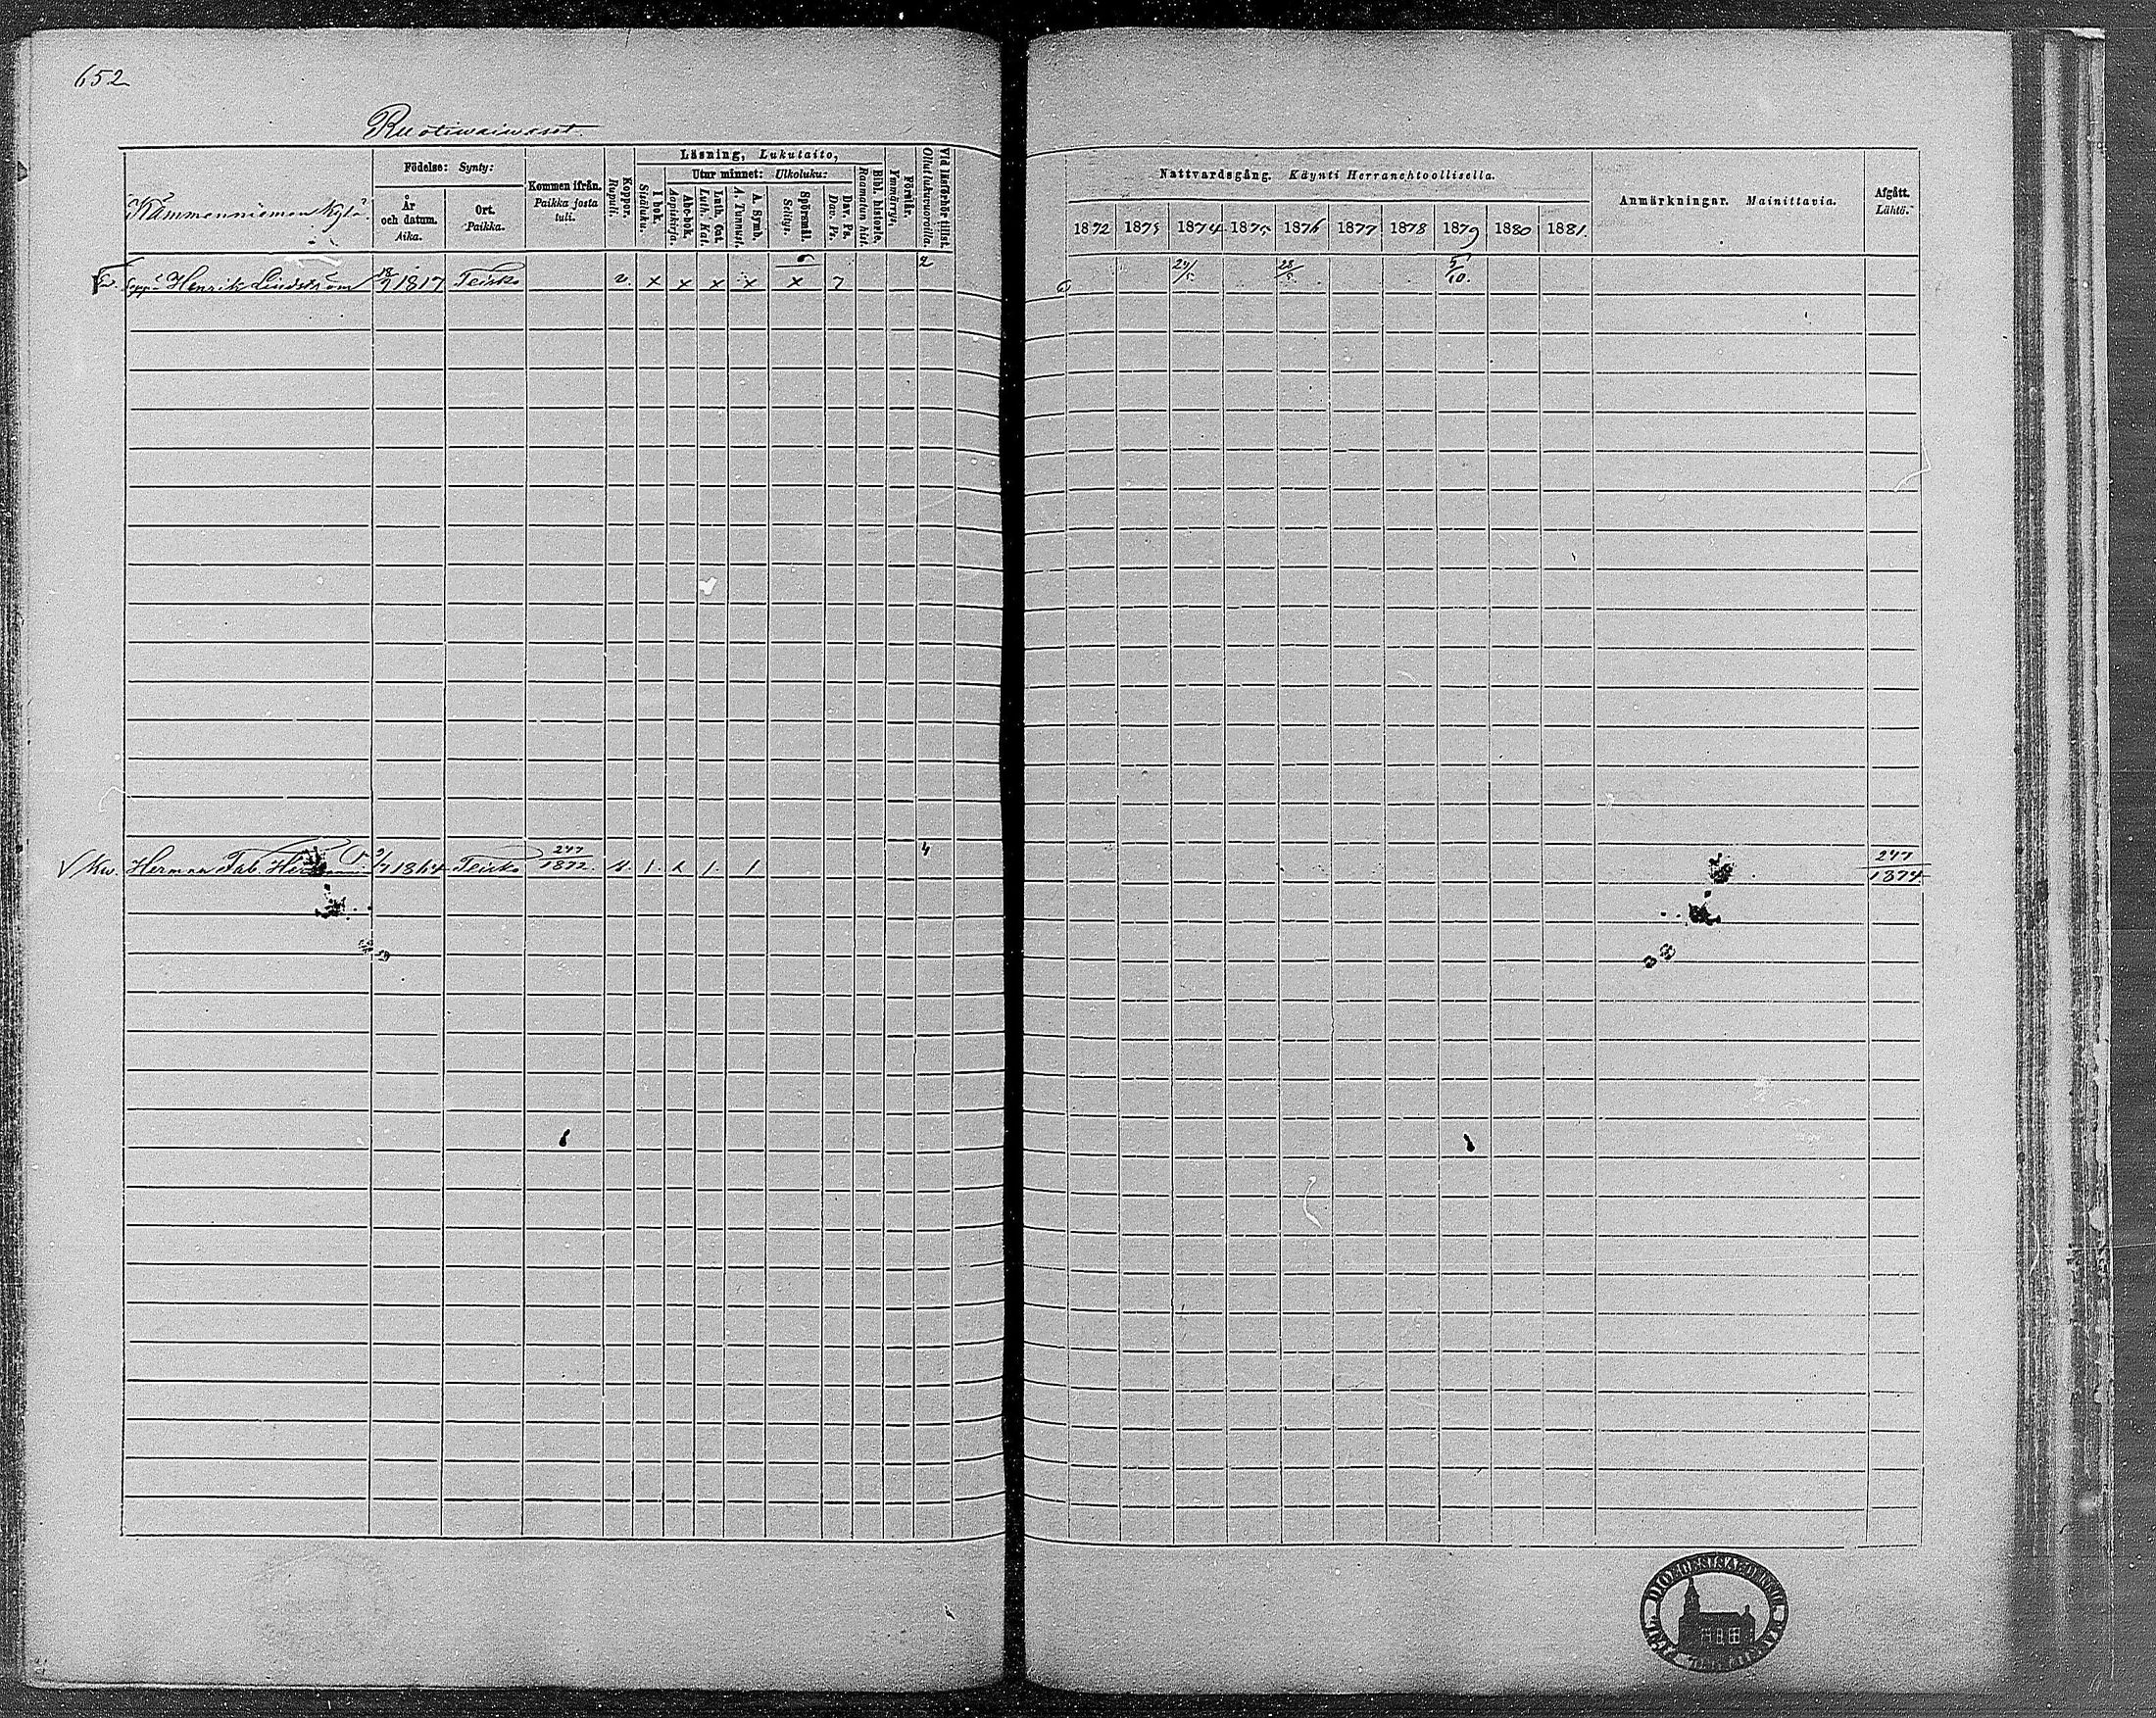 652
Ruotiwaiwaset.
Kämmenniemen kylä.
Födelse: Synty:
År och datum. Aika.
Ort. Paikka.
Kommen ifrån. Paikka josta tuli.
Koppor. Rupuli.
Läsning, Lukutaito,
I bok. Sisäluku.
Utur minnet: Ulkoluku:
Abc-bok. Aapiskirja.
Luth. Cat. Luth. Kat.
A. Symb. A. Tunnust.
Spörsmål. Selitys.
Dav. Ps. Dav. Ps.
Bibl. historie. Raamatun hist.
Förstår. Ymmärrys.
Vid läsförhör tillst. Ollut lukuvuoroilla.
Nattvardsgång. Käynti Herranehtoollisella.
1872 1873 1874 1875 1876 1877 1878 1879 1880 1881
Anmärkningar. Mainittavia.
Afgått. Lähtö.
Seppä Henrik Lindström 18/7 1817 Teisko v. x x x x x 7 2 24/5. 28/5. 5/10.
Kw. Herman Fab. 1864 Teisko 247/1872. 1. x 1. 1 4 247/1874